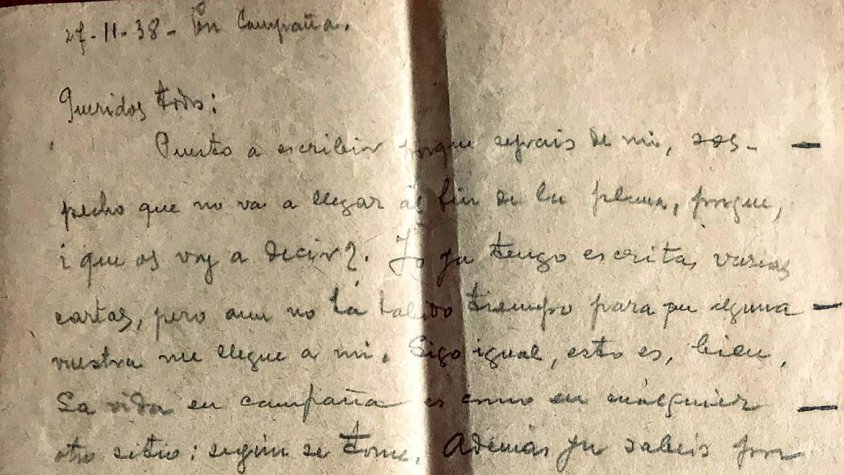 27-11-38- En Campaña.
Queridos todos:
Puesto a escribir porque sepais de mi, sos-
pecho que no va a llegar al fin de la pluma, porque,
¿que os voy a decir?. Yo ya tengo escritas varias
cartas, pero aun no ha habido tiempo para que alguna
vuestra me llegue a mi. Sigo igual, esto es, bien.
La vida en campaña es como en cualquier
otro sitio: según se tome. Además ya sabeis